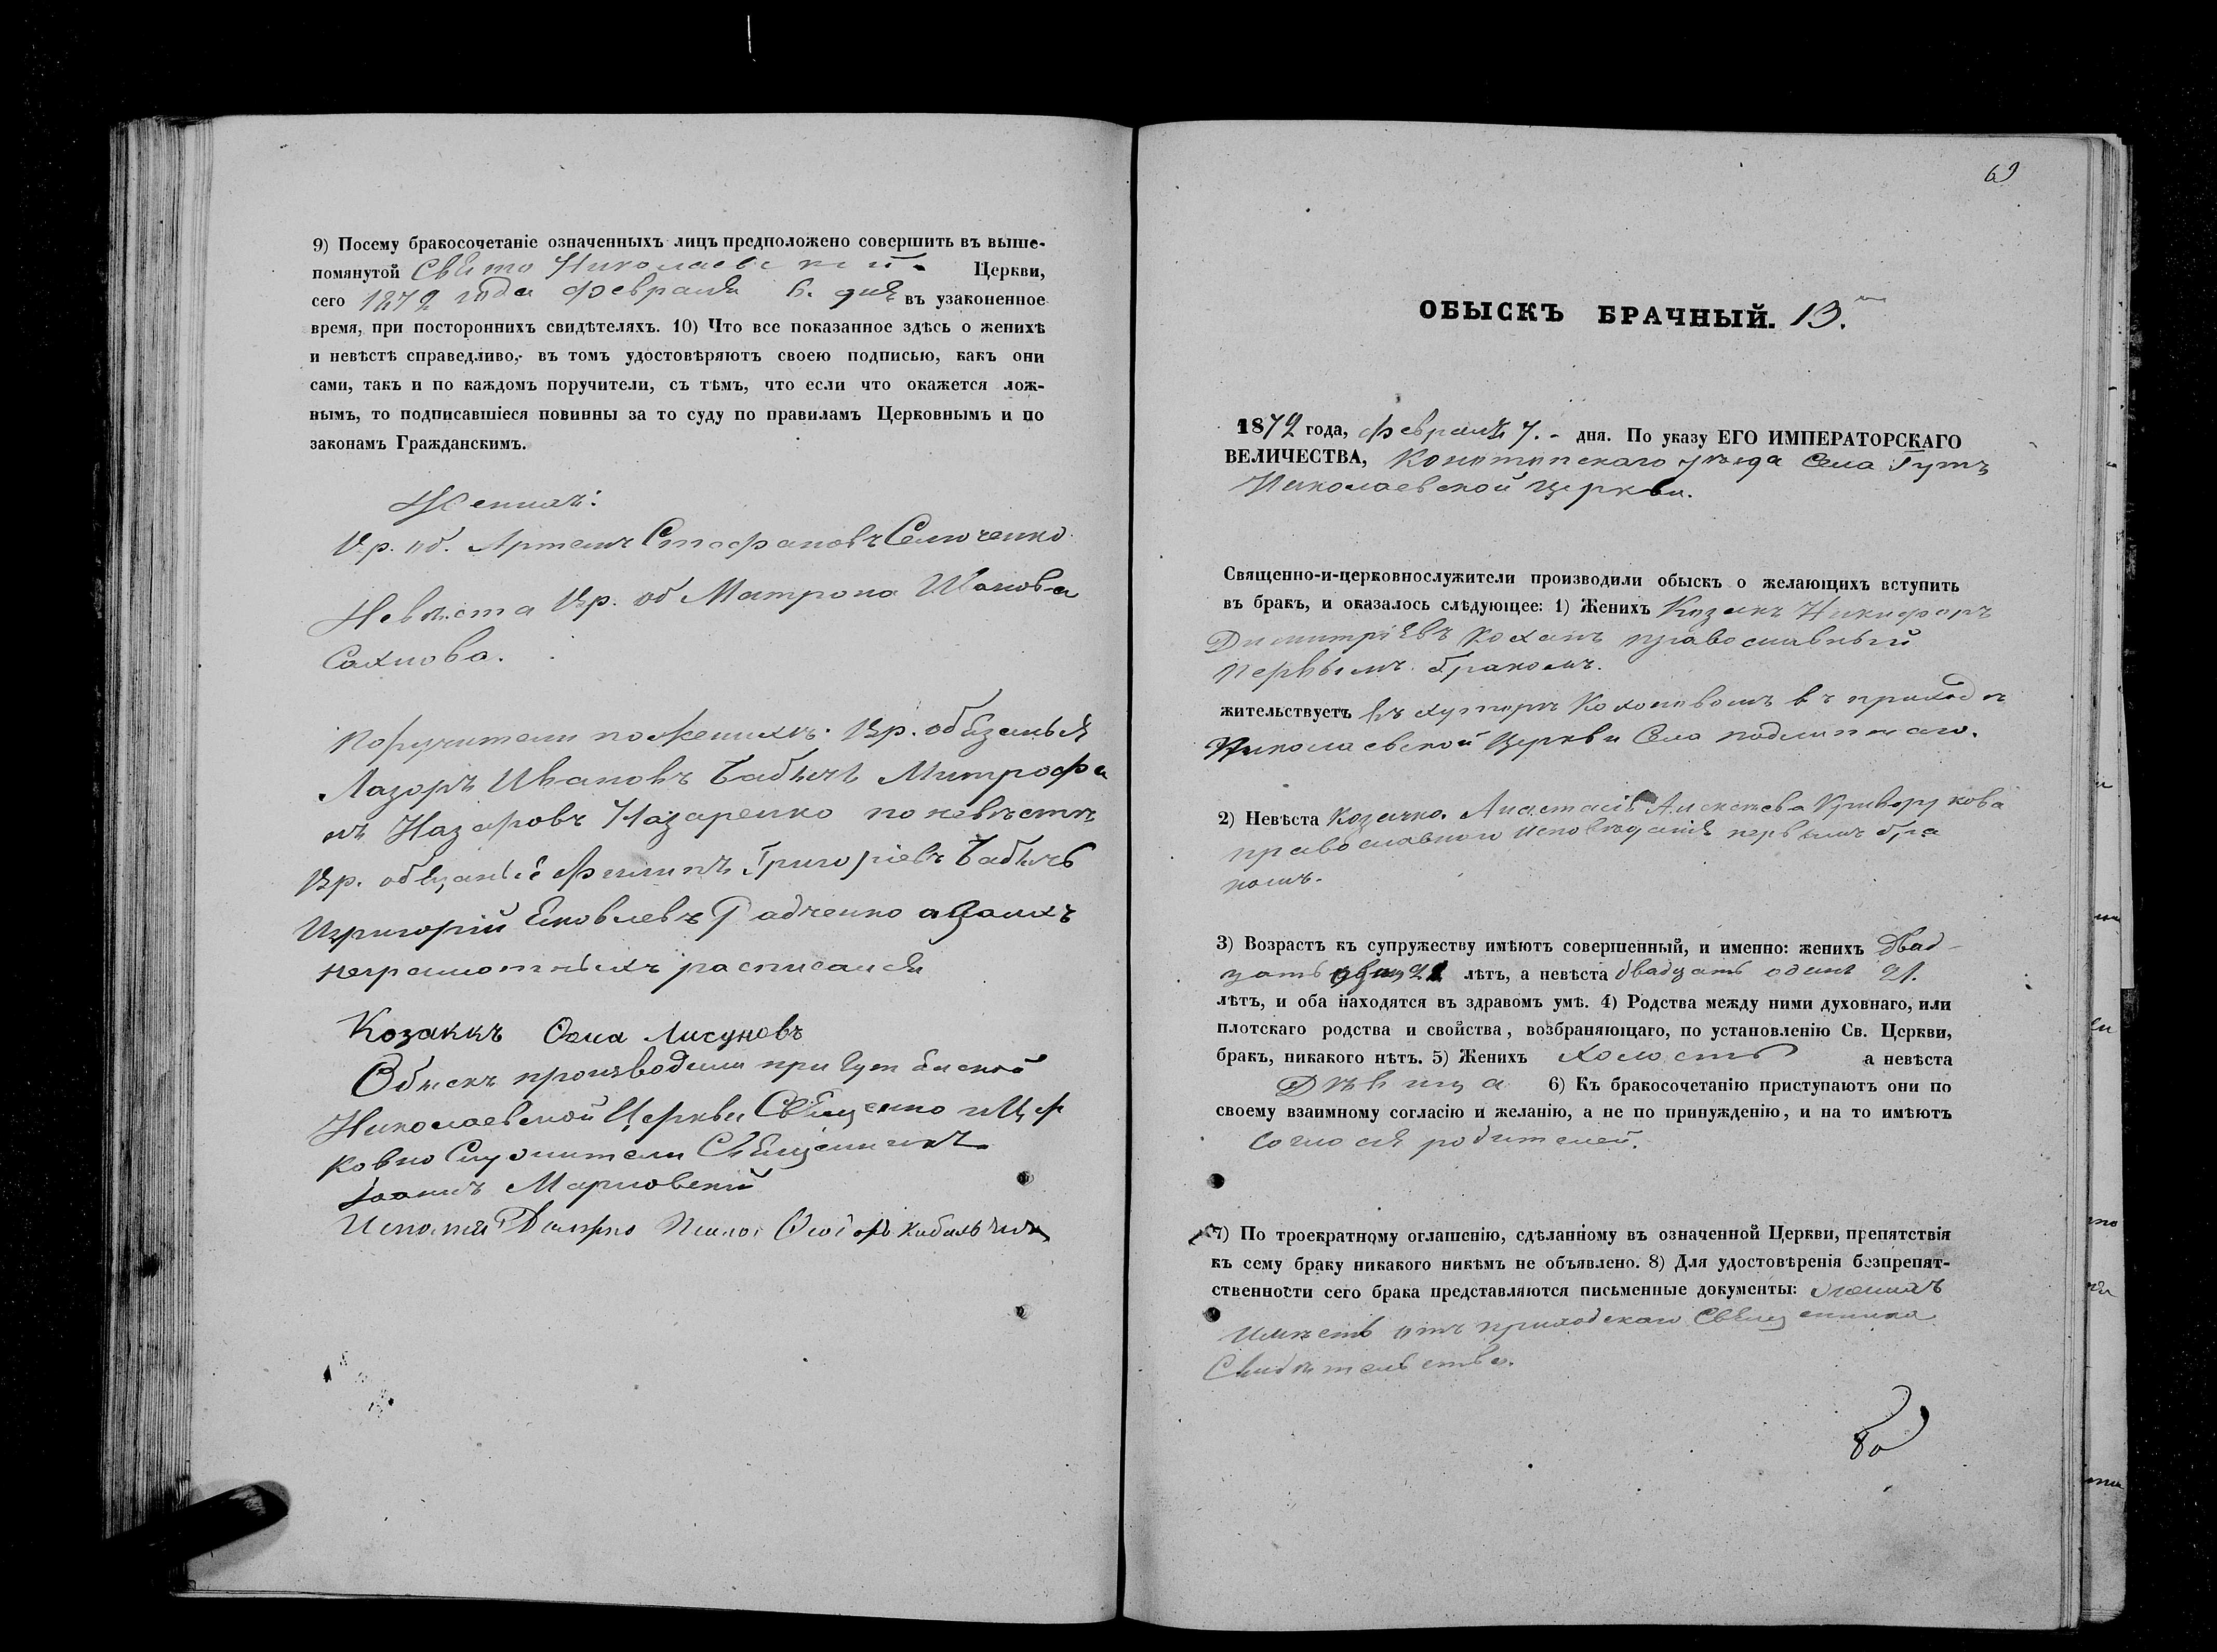 9) Посему бракосочетаніе означенныхъ лицъ предположено совершить въ выше-
помянутой Свято Николаевской Церкви,
сего 1872 года февраля 6. дня въ узаконенное
время, при постороннихъ свидѣтеляхъ. 10) Что все показанное здѣсь о женихѣ
и невѣстѣ справедливо, въ томъ удостовѣряютъ своею подписью, какъ они
сами, такъ и по каждомъ поручители, съ тѣмъ, что если что окажется лож-
нымъ, то подписавшіеся повинны за то суду по правиламъ Церковнымъ и по
законамъ Гражданскимъ.
Женихъ:
Вр. об. Артемъ Стефановъ Семченко
Невѣста Вр. об Матрона Иванова
Сахнова.
Поручители по женихѣ: Вр. обязаныя
Лазоръ Ивановъ Бабичъ Митрофа
нъ Назаровъ Назаренко по невѣстѣ
Вр. обязаныя Филипъ Григоріевъ Бабичъ
Игригорій Яковлевъ Радченко а за ихъ
неграмотныхъ росписался
Козакъ Фома Лисуновъ
Обыскъ производили при Гутянской
Николаевской Церкви Священно и Цер
ковно Служители Священникъ
Іоаннъ Марковскій
69
ОБЫСКЪ БРАЧНЫЙ. 13.
1872 года, февраля 7. дня. По указу ЕГО ИМПЕРАТОРСКАГО
ВЕЛИЧЕСТВА, Конотопскаго уѣзда Села Гутъ
Николаевской Церкви.
Священно-и-церковнослужители производили обыскъ о желающихъ вступить
въ бракъ, и оказалось слѣдующее: 1) Женихъ Козакъ Никифоръ
Димитріевъ Коханъ православный
первымъ бракомъ.
жительствуетъ въ хуторѣ Кохановомъ въ приходѣ
Николаевской Церкви Села Подлипнаго.
2) Невѣста Козачка Анастасія Алексѣева Криворукова
православнаго исповѣданія первымъ бра
комъ.
3) Возрастъ къ супружеству имѣютъ совершенный, и именно: женихъ Двад-
цать лѣтъ, а невѣста двадцать одинъ 21.
лѣтъ, и оба находятся въ здравомъ умѣ. 4) Родства между ними духовнаго, или
плотскаго родства и свойства, возбраняющаго, по установленію Св. Церкви,
бракъ, никакого нѣтъ. 5) Женихъ холостъ а невѣста
Дѣвица 6) Къ бракосочетанію приступаютъ они по
своему взаимному согласію и желанію, а не по принужденію, и на то имѣютъ
согласія родителей.
7) По троекратному оглашенію, сдѣланному въ означенной Церкви, препятствія
къ сему браку никакого никѣмъ не объявлено. 8) Для удостовѣренія безпрепят-
ственности сего брака представляются письменные документы: женихъ
имѣетъ отъ приходскаго Священника
Свидѣтельство.